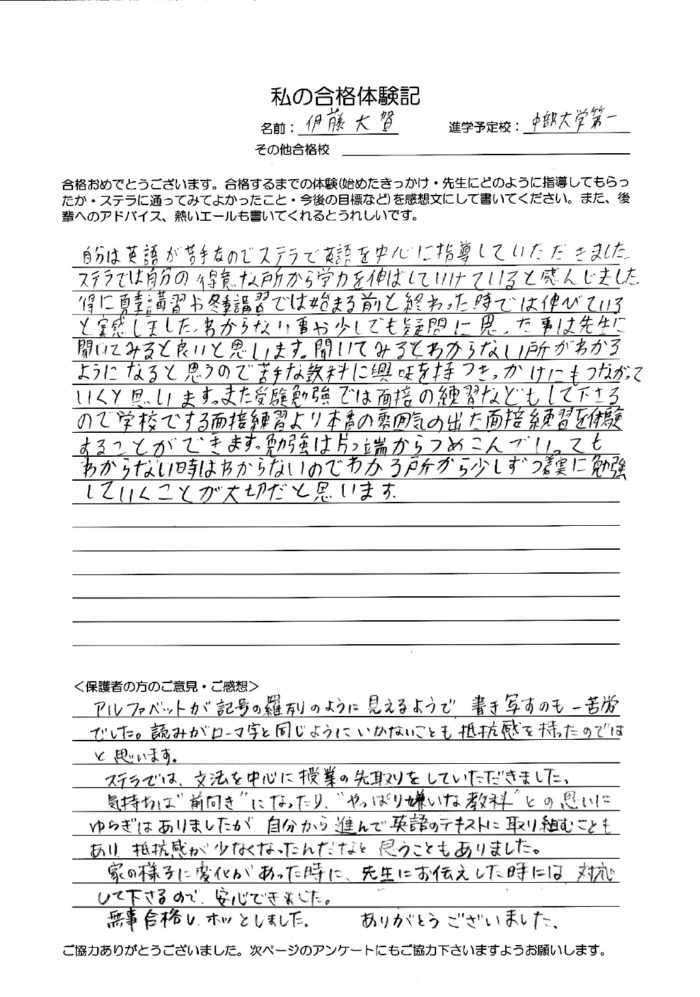 私の合格体験記
名前: 伊藤大賀 進学予定校: 中部大学第一
その他合格校
合格おめでとうございます。合格するまでの体験(始めたきっかけ・先生にどのように指導してもらっ
たか・ステラに通ってみてよかったこと・今後の目標など)を感想文にして書いてください。また、後
輩へのアドバイス、熱いエールも書いてくれるとうれしいです。
自分は英語が苦手なのでステラで英語を中心に指導していただきました。
ステラでは自分の得意な所から学力を伸ばしていけていると感んじました。
得に夏季講習や冬季講習では始まる前と終わった時では伸べている
と実感しました。わからない事や少しでも疑問に思った事は先生に
聞いてみると良いと思います。聞いてみるとわからない所がわかる
ようになると思うので苦手な教科に興味を持つきっかけにもつながって
いくと思います。また受験勉強では面接の練習などもして下さる
ので学校でする面接練習より本番の雰囲気の出た面接練習を体験
することができます。勉強は片っ端からつめこんでいっても
わからない時はわからないのでわかる所から少しずつ着実に勉強
していくことが大切だと思います。
<保護者の方のご意見・ご感想>
アルファベットが記号の羅列のように見えるようで 書き写すのも一苦労
でした。読みがローマ字と同じようにいかないことも抵抗感を持ったのでは
と思います。
ステラでは、文法を中心に授業の先取りをしていただきました。
気持ちは"前向き"になったり、"やっぱり嫌いな教科"との思いに
ゆらぎはありましたが 自分から進んで英語のテキストに取り組むことも
あり 抵抗感が少なくなったんだなと思うこともありました。
家の様子に変化があった時に、先生にお伝えした時には 対応
して下さるので、安心できました。
無事合格し、ホッとしました。 ありがとうございました。
ご協力ありがとうございました。次ページのアンケートにもご協力下さいますようお願いします。